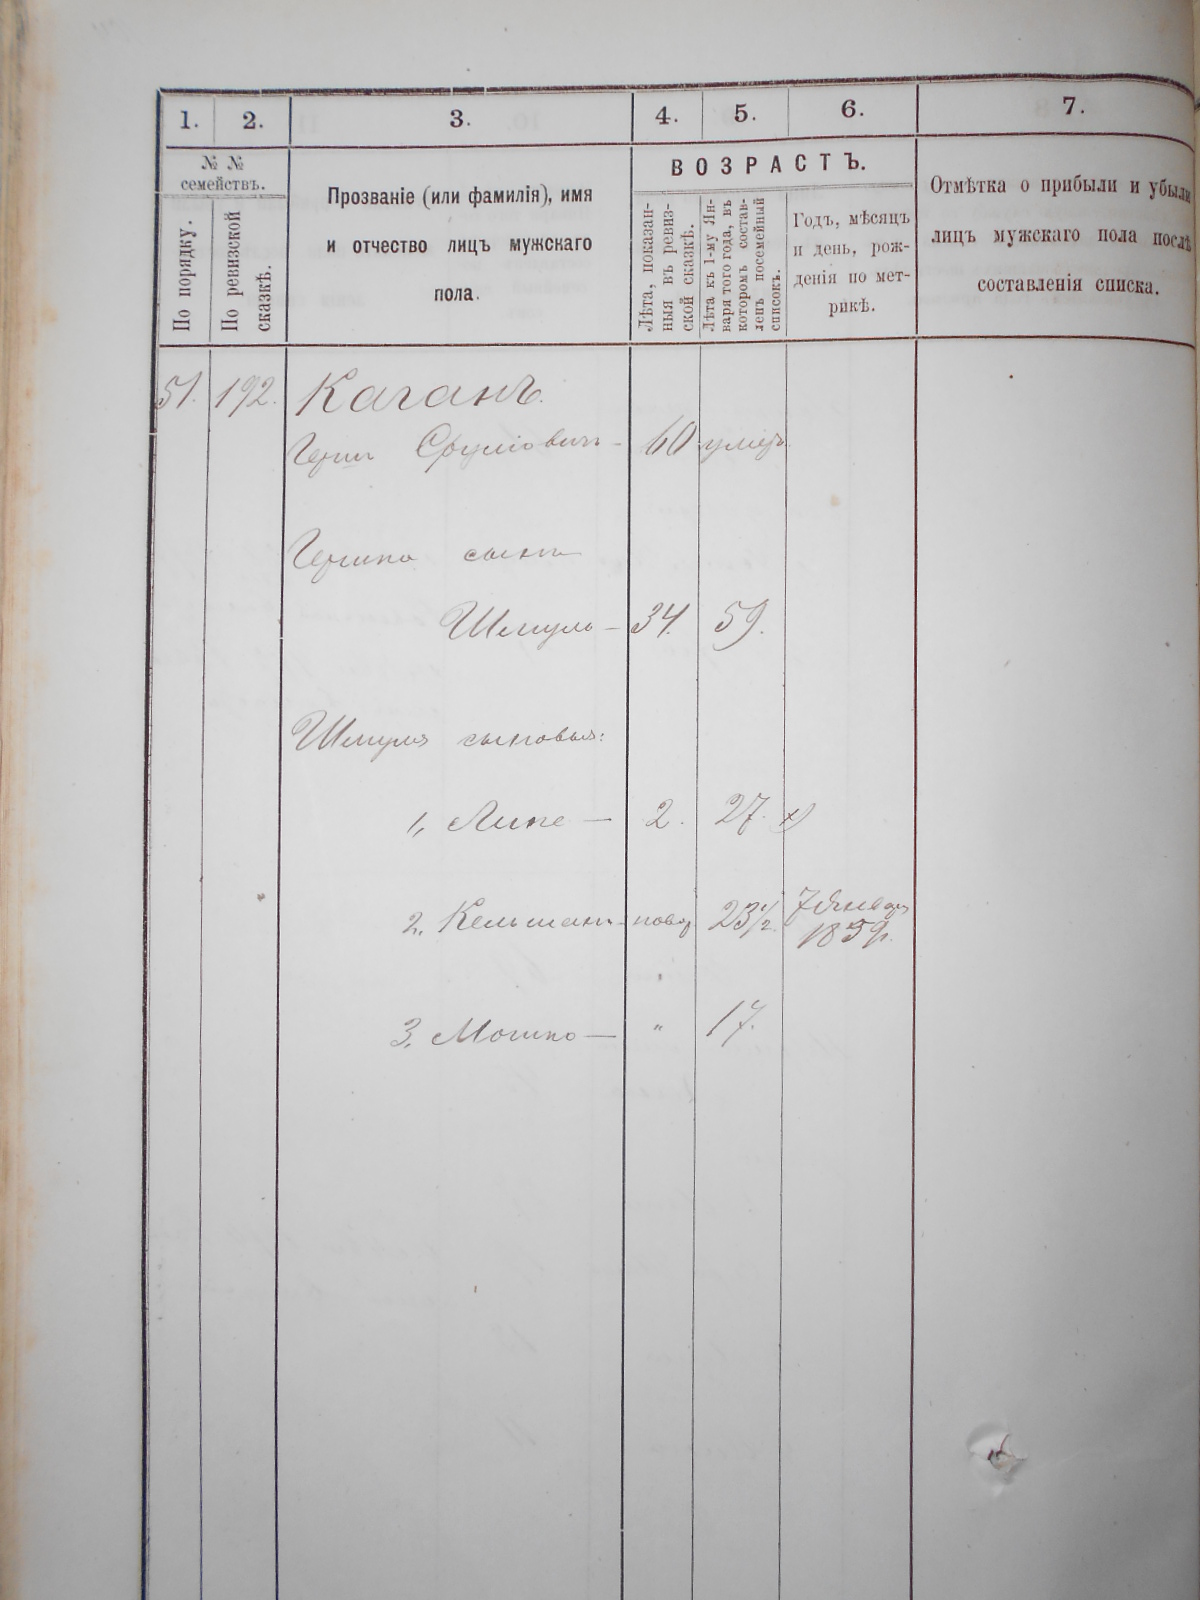 1. 2. 3. 4. 5. 6. 7.
№ №
семействъ.
По порядку.
По ревизской
сказкѣ.
Прозваніе (или фамилія), имя
и отчество лицъ мужскаго
пола.
ВОЗРАСТЪ.
Лѣта, показан-
ныя въ ревиз-
ской сказкѣ.
Лѣта къ 1-му Ян-
варя того года, въ
которомъ состав-
ленъ посемейный
списокъ.
Годъ, мѣсяцъ
и день, рож-
денія по мет-
рикѣ.
Отмѣтка о прибыли и убыли
лицъ мужскаго пола послѣ
составленія списка.
51. 192. Каганъ.
Герш Сруліовичъ - 60 умеръ
Гершка сынъ
Шмуль - 34. 59.
Шмуля сыновья:
1, Липе — 2. 27. х)
2, Кельманъ - новор 23 1/2. 7 Января
1859г.
3, Мошко — " 17.